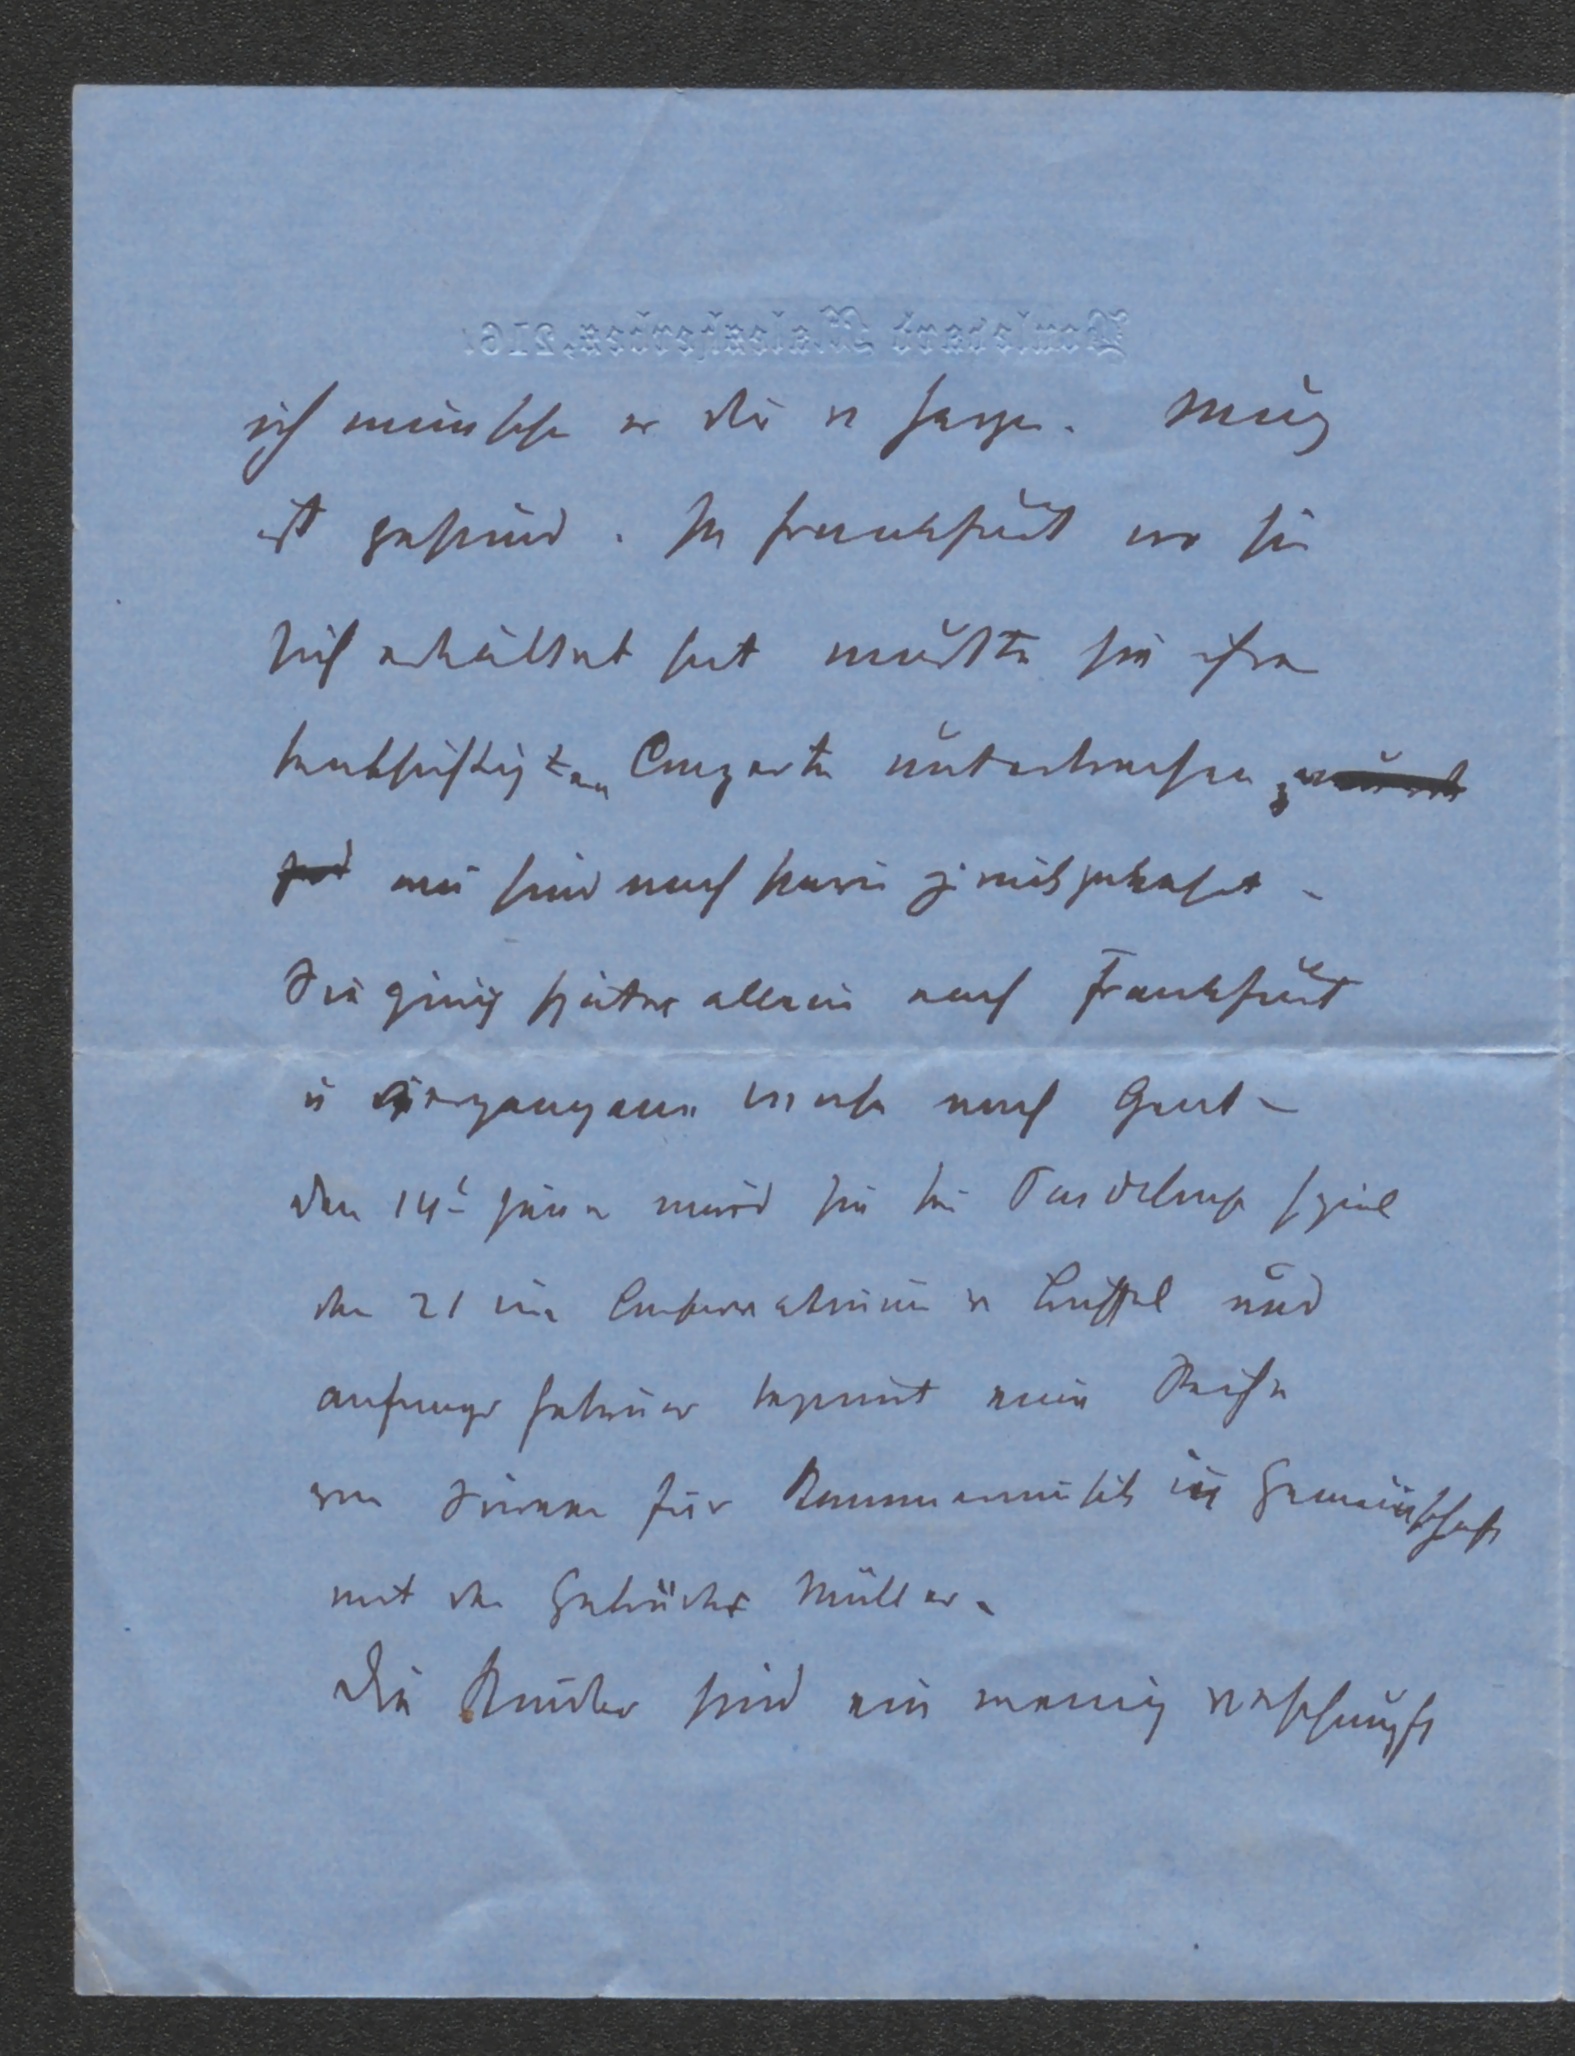 Boulevard Malesherbes, 216.
ich wünsche er dir zu sagen. Meine
ist gesund. In Frankfurt wo sie
sich erkältet hat mußte sie ihre
beabsichtigten Conzerte unterbrechen
wir sind nach Paris zurückgekehrt –
Sie ging später allein nach Frankfurt
u vergangene Woche nach Gent –
den 14t Januar wird sie bei Pasdeloup spiel
den 21 im Conservatorium in Brüssel und
anfangs Februar beginnt eine Reihe
von Soireen für Kammermusik in Gemeinschaft
mit den Gebrüder Müller.
Die Kinder sind ein wenig verschnupft